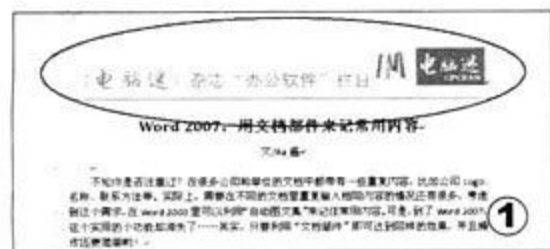 电脑迷 杂志“办公软件”栏目 1M 电脑迷
CPCFAN
Word 2007：用文档部件来记常用内容
不知你是否注意过？在很多公司和单位的文档中都带有一些重复内容，比如公司 Logo、
名称、联系方法等。实际上，需要在不同的文档里重复输入相同内容的情况还有很多。考虑
到这个需求，在 Word 2003 里可以利用“自动图文集”来记住常用内容。可是，到了 Word 2007，
这个实用的小功能却消失了……其实，只要利用“文档部件”即可达到同样的效果，并且操
作还更简单呢！
①